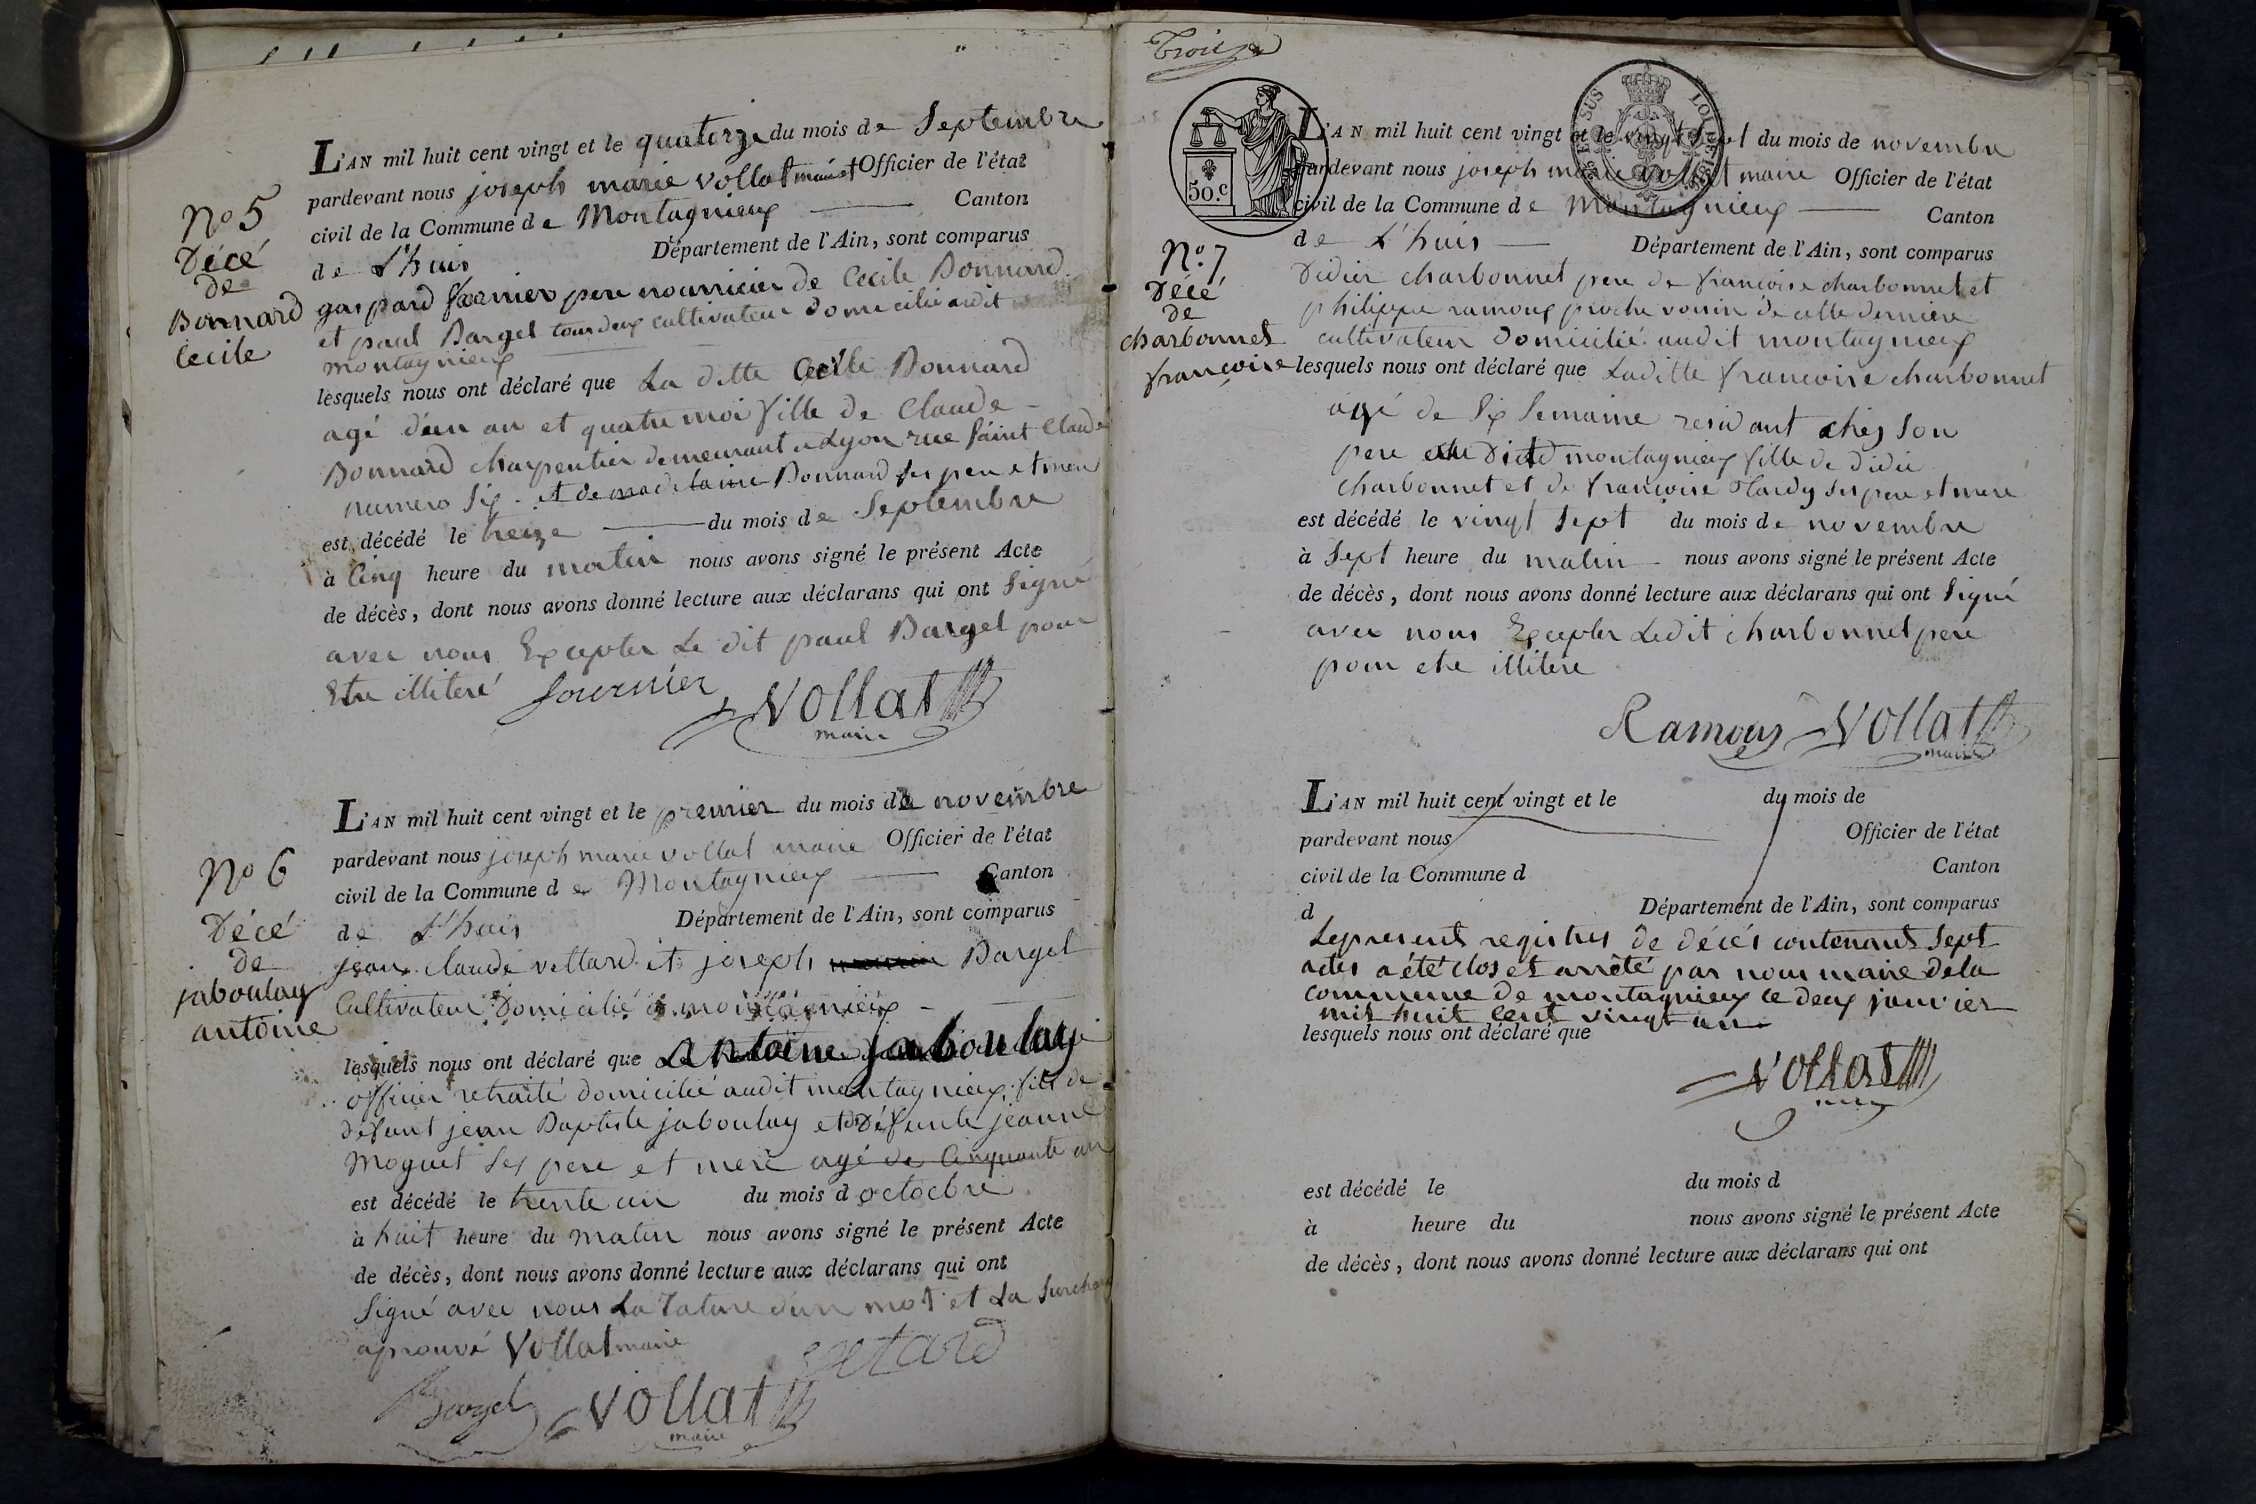 L'AN mil huit cent vingt et le quatorze du mois de Septembre
pardevant nous joseph marie vollat maire Officier de l'état
civil de la Commune de Montagnieux Canton
de L'huis Département de l'Ain, sont comparus
gaspard fournier pere nourricier de Cecile Bonnard
et paul Bargel tous deux cultivateur domicilié audit
montagnieux
lesquels nous ont déclaré que La ditte Cecile Bonnard
agé d'un an et quatre moi fille de Claude
Bonnard charpentier demeurant a Lyon rue saint Claude
numero six et de madelaine Bonnard ses pere et mere
est décédé le treize du mois de Septembre
à Cinq heure du matin nous avons signé le présent Acte
de décès, dont nous avons donné lecture aux déclarans qui ont Signé
avec nous Excepter Le dit paul Bargel pour
Etre illiteré
fournier Vollat
maire
No 5
Décé
de
Bonnard
Cecile
L'AN mil huit cent vingt et le premier du mois de novembre
pardevant nous joseph marie vollat maire Officier de l'état
civil de la Commune de Montagnieux Canton
de L'huis Département de l'Ain, sont comparus
jean claude vettard et joseph Bargel
Cultivateur Domicilié a montagnieux
lesquels nous ont déclaré que antoine jaboulay
officier retraité domicilié audit montagnieux fils de
défunt jean Baptiste jaboulay et de Défunte jeanne
Moguet Ses pere et mere agé de Cinquante an
est décédé le trente un du mois d octobre
à huit heure du matin nous avons signé le présent Acte
de décès, dont nous avons donné lecture aux déclarans qui ont
Signé avec nous La rature d'un mot et La Surcharge
aprouvé Vollat maire
Bargel Vollat vetard
maire
No 6
Décé
de
jaboulay
antoine
Trois
50.c
L'AN mil huit cent vingt et le vingt Sept du mois de novembre
pardevant nous joseph marie vollat maire Officier de l'état
civil de la Commune de Montagnieux Canton
de L'huis Département de l'Ain, sont comparus
Didier charbonnet pere de françoise charbonnet et
philippe ramoux proche voisin de cette derniere
cultivateur domicilié audit montagnieux
lesquels nous ont déclaré que Laditte francoise charbonnet
agé de Six Semaine residant chez Son
pere montagnieux fille de didié
Charbonnet et de françoise Tardy ses pere et mere
est décédé le vingt Sept du mois de novembre
à Sept heure du matin nous avons signé le présent Acte
de décès, dont nous avons donné lecture aux déclarans qui ont Signé
avec nous Excepter Ledit charbonnet pere
pour etre illitere
Ramoux Vollat
maire
No 7
Décé
de
charbonnet
françoise
L'AN mil huit cent vingt et le du mois de
pardevant nous Officier de l'état
civil de la Commune d Canton
d Département de l'Ain, sont comparus
Le present registres de décés contenant Sept
actes a été clos et arrêté par nous maire de la
commune de montagnieux ce deux janvier
mil huit Cent vingt un
lesquels nous ont déclaré que
Vollat
maire
est décédé le du mois d
à heure du nous avons signé le présent Acte
de décès, dont nous avons donné lecture aux déclarans qui ont